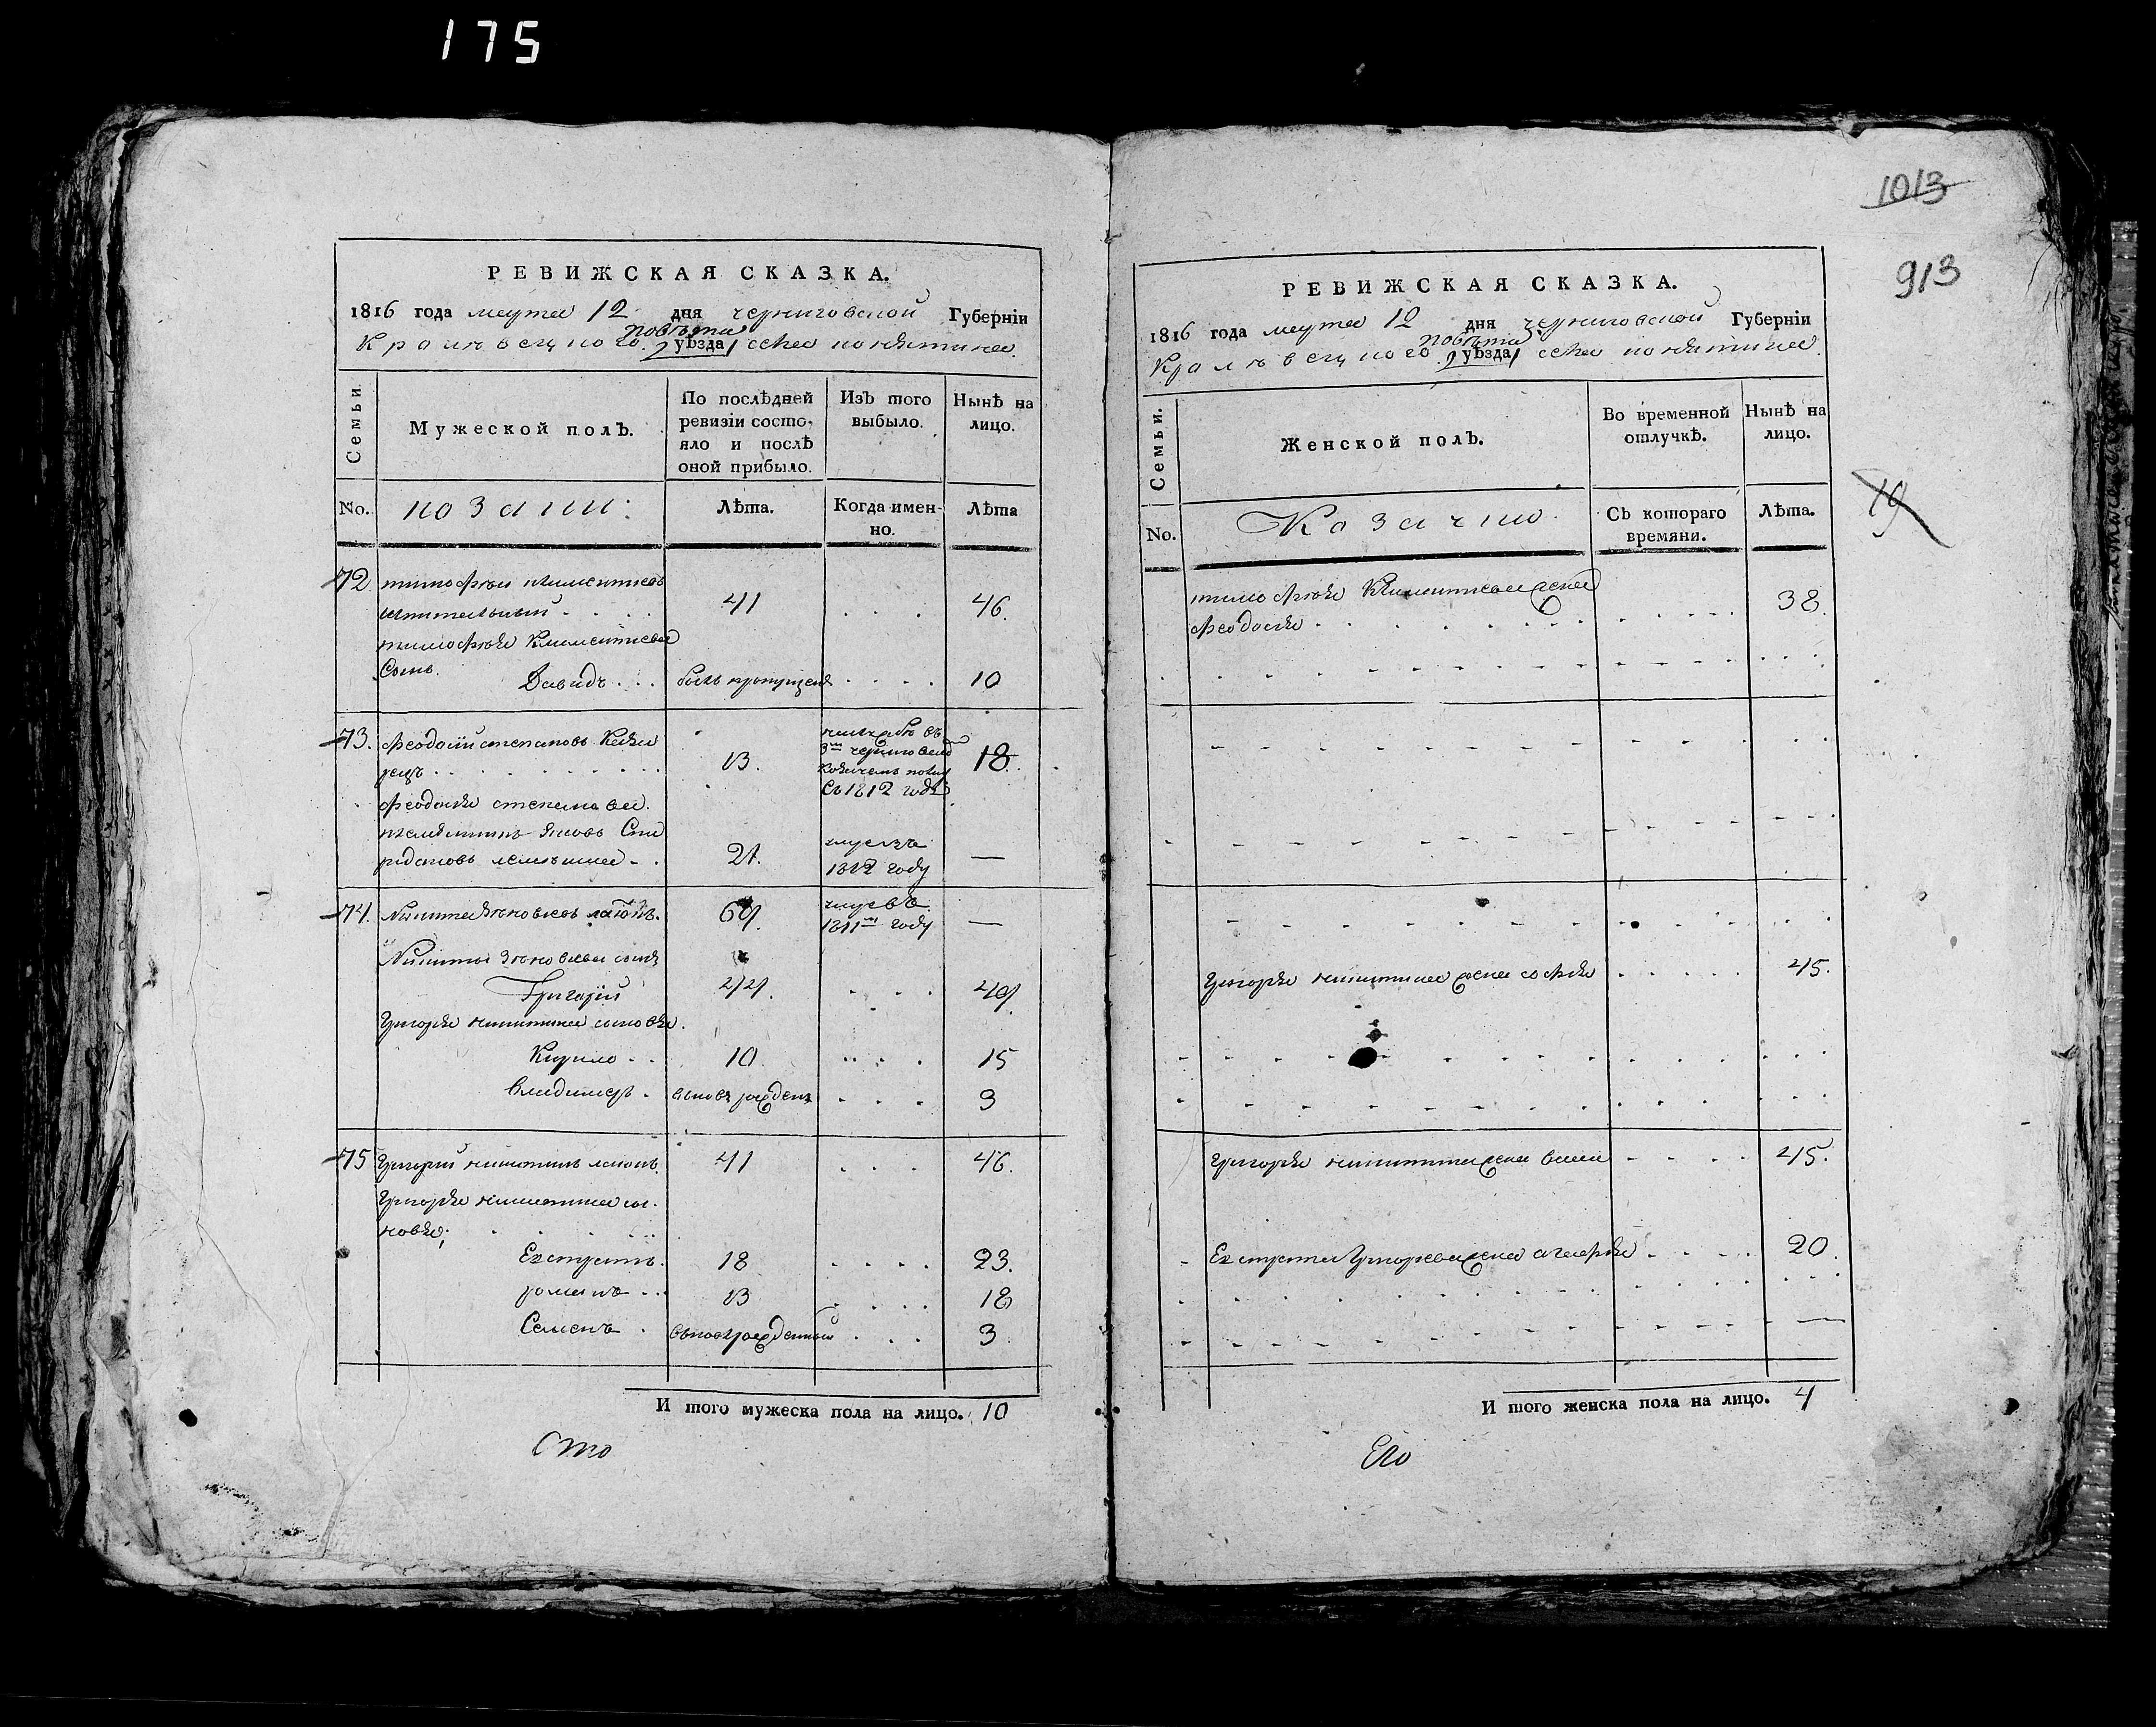 175
1013
913
19
РЕВИЖСКАЯ СКАЗКА.
1816 года марта 12 дня черниговской Губерніи
повѣта
Кролевецкого уѣзда села
Семьи
Мужеской полъ.
По послѣдней ревизіи состояло и послѣ оной прибыло.
Изъ того выбыло.
Нынѣ на лицо.
No.
козаки:
Лѣта.
Когда именно.
Лѣта
72 тимофѣй климентиевъ
41 46.
тимофѣя Климентиева
Сынъ.
Давидъ былъ пропущенъ 10
73. феодосій степановъ
13. 18.
Съ 1812 году
феодосия степанова
племянникъ Яковъ Спи
ридоновъ 21. умре въ —
1812 году
74. Никита Зѣновиевъ 69. умре въ —
1811м году
Никиты Зѣновиева сынъ
Григорій 44. 49.
Григорія никитина сыновья.
Кирило 10. 15
владимеръ вновь рожденъ 3
75 Григорій никитинъ 41 46.
Григорія никитина сы-
новья;
Евстратъ. 18 23.
романъ 13 18
Семенъ вновьрожденный 3
И того мужеска пола на лицо. 10
РЕВИЖСКАЯ СКАЗКА.
1816 года марта 12 дня черниговской Губерніи
повѣта
Кролевецкого уѣзда села
Семьи.
Женской полъ.
Во временной отлучкѣ.
Нынѣ на лицо.
No.
Козачки
Съ котораго времяни.
Лѣта.
тимофѣя Климентиева жена
феодосия 38.
Григорія никитина жена софия 45.
Григорія никитина жена 45.
Евстрата Григориева жена 20.
И того женска пола на лицо. 4